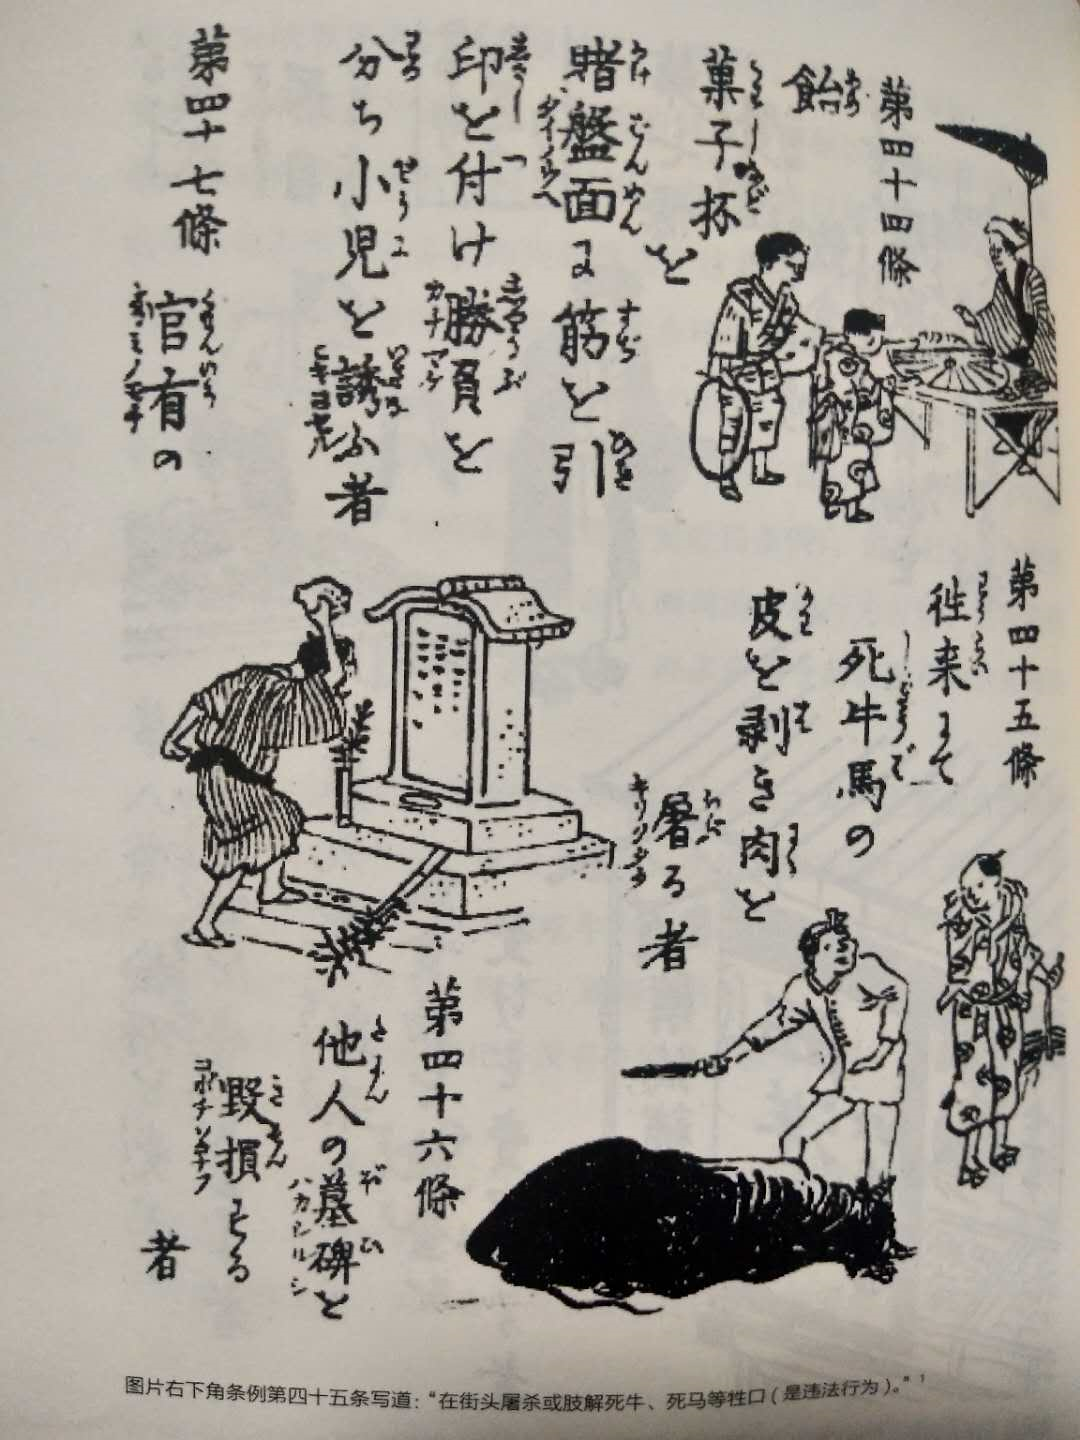 第四十四條
飴
菓子杯を
賭盤面に筋を引
印を付け勝負を
分ち小児を誘ふ者
第四十七條
官有の
第四十五條
往来にて
死牛馬の
皮を剥き肉を
屠る者
第四十六條
他人の墓碑を
毀損する
者
图片右下角条例第四十五条写道：“在街头屠杀或肢解死牛、死马等牲口（是违法行为）。”1